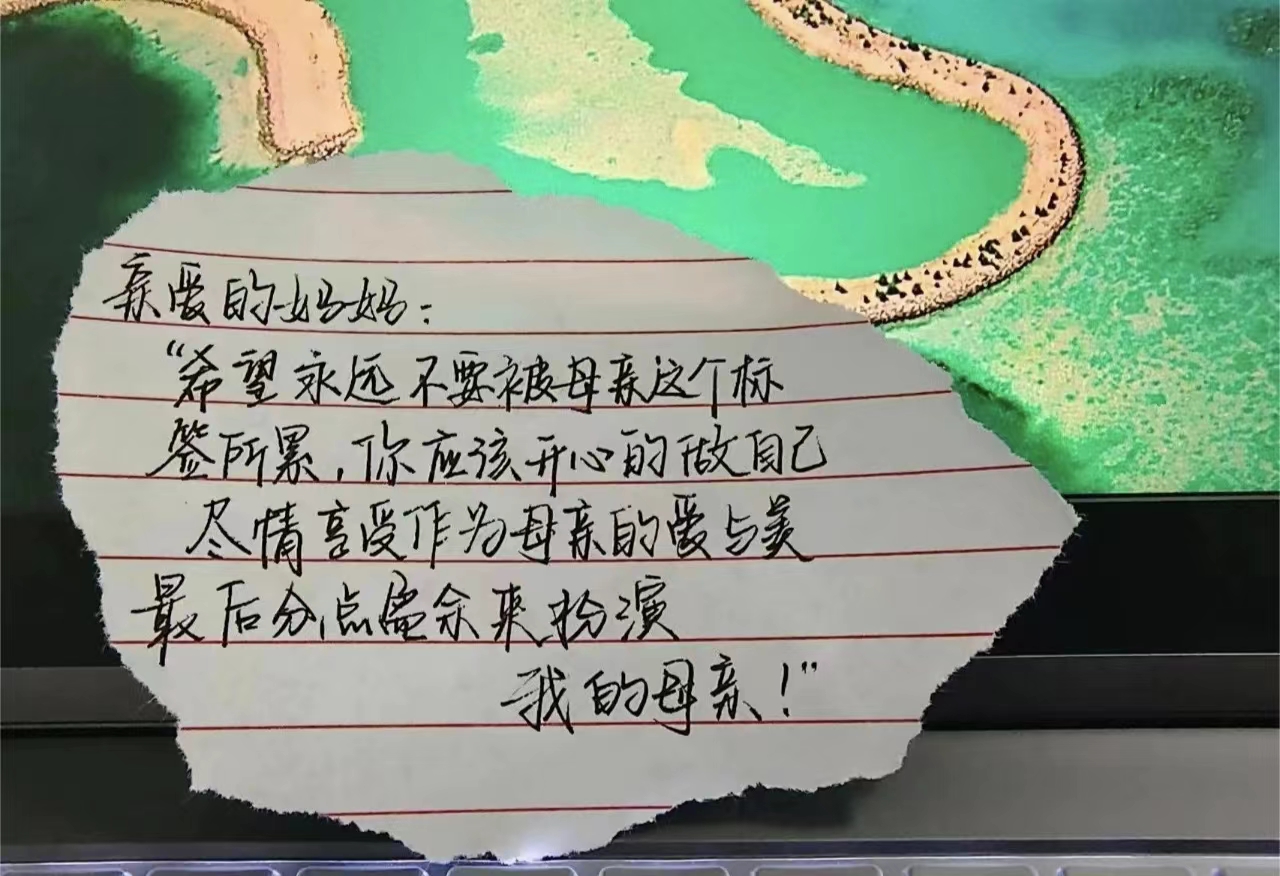 亲爱的妈妈：
“希望永远不要被母亲这个标
签所累，你应该开心的做自己
尽情享受作为母亲的爱与美
最后分点盈余来扮演
我的母亲！”